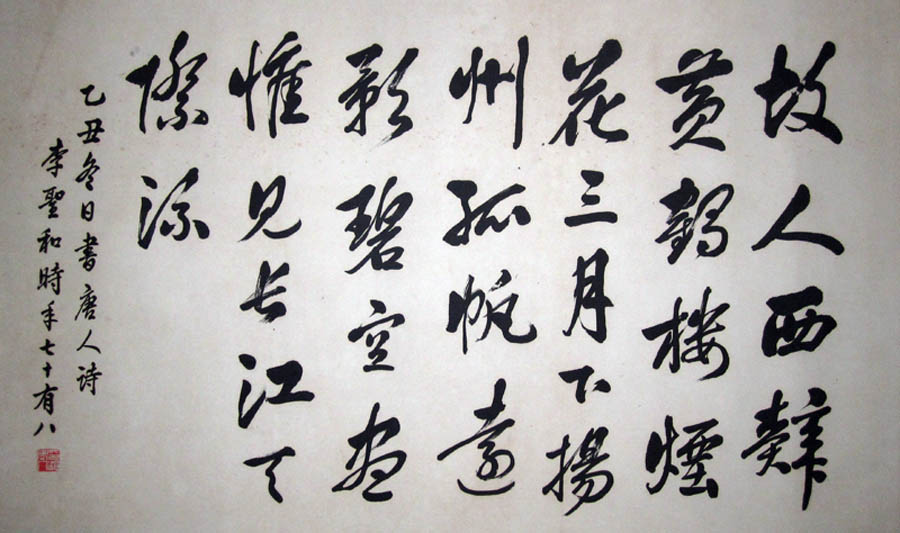 故人西辭
黄鶴樓煙
花三月下揚
州孤帆遠
影碧空盡
惟見長江天
際流
乙丑冬日書唐人詩
李聖和時年七十有八